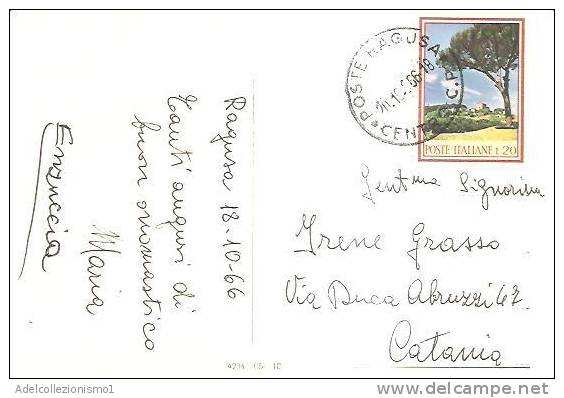 Ragusa 18-10-66
Tanti auguri di
buon onomastico
Maria
Enzuccia
POSTE RAGUSA
CENTRO C.P.
POSTE ITALIANE L. 20
Gent ma Signorina
Irene Grasso
Via Duca Abruzzi 67
Catania
Adelcollezionismo1
delcampe.net